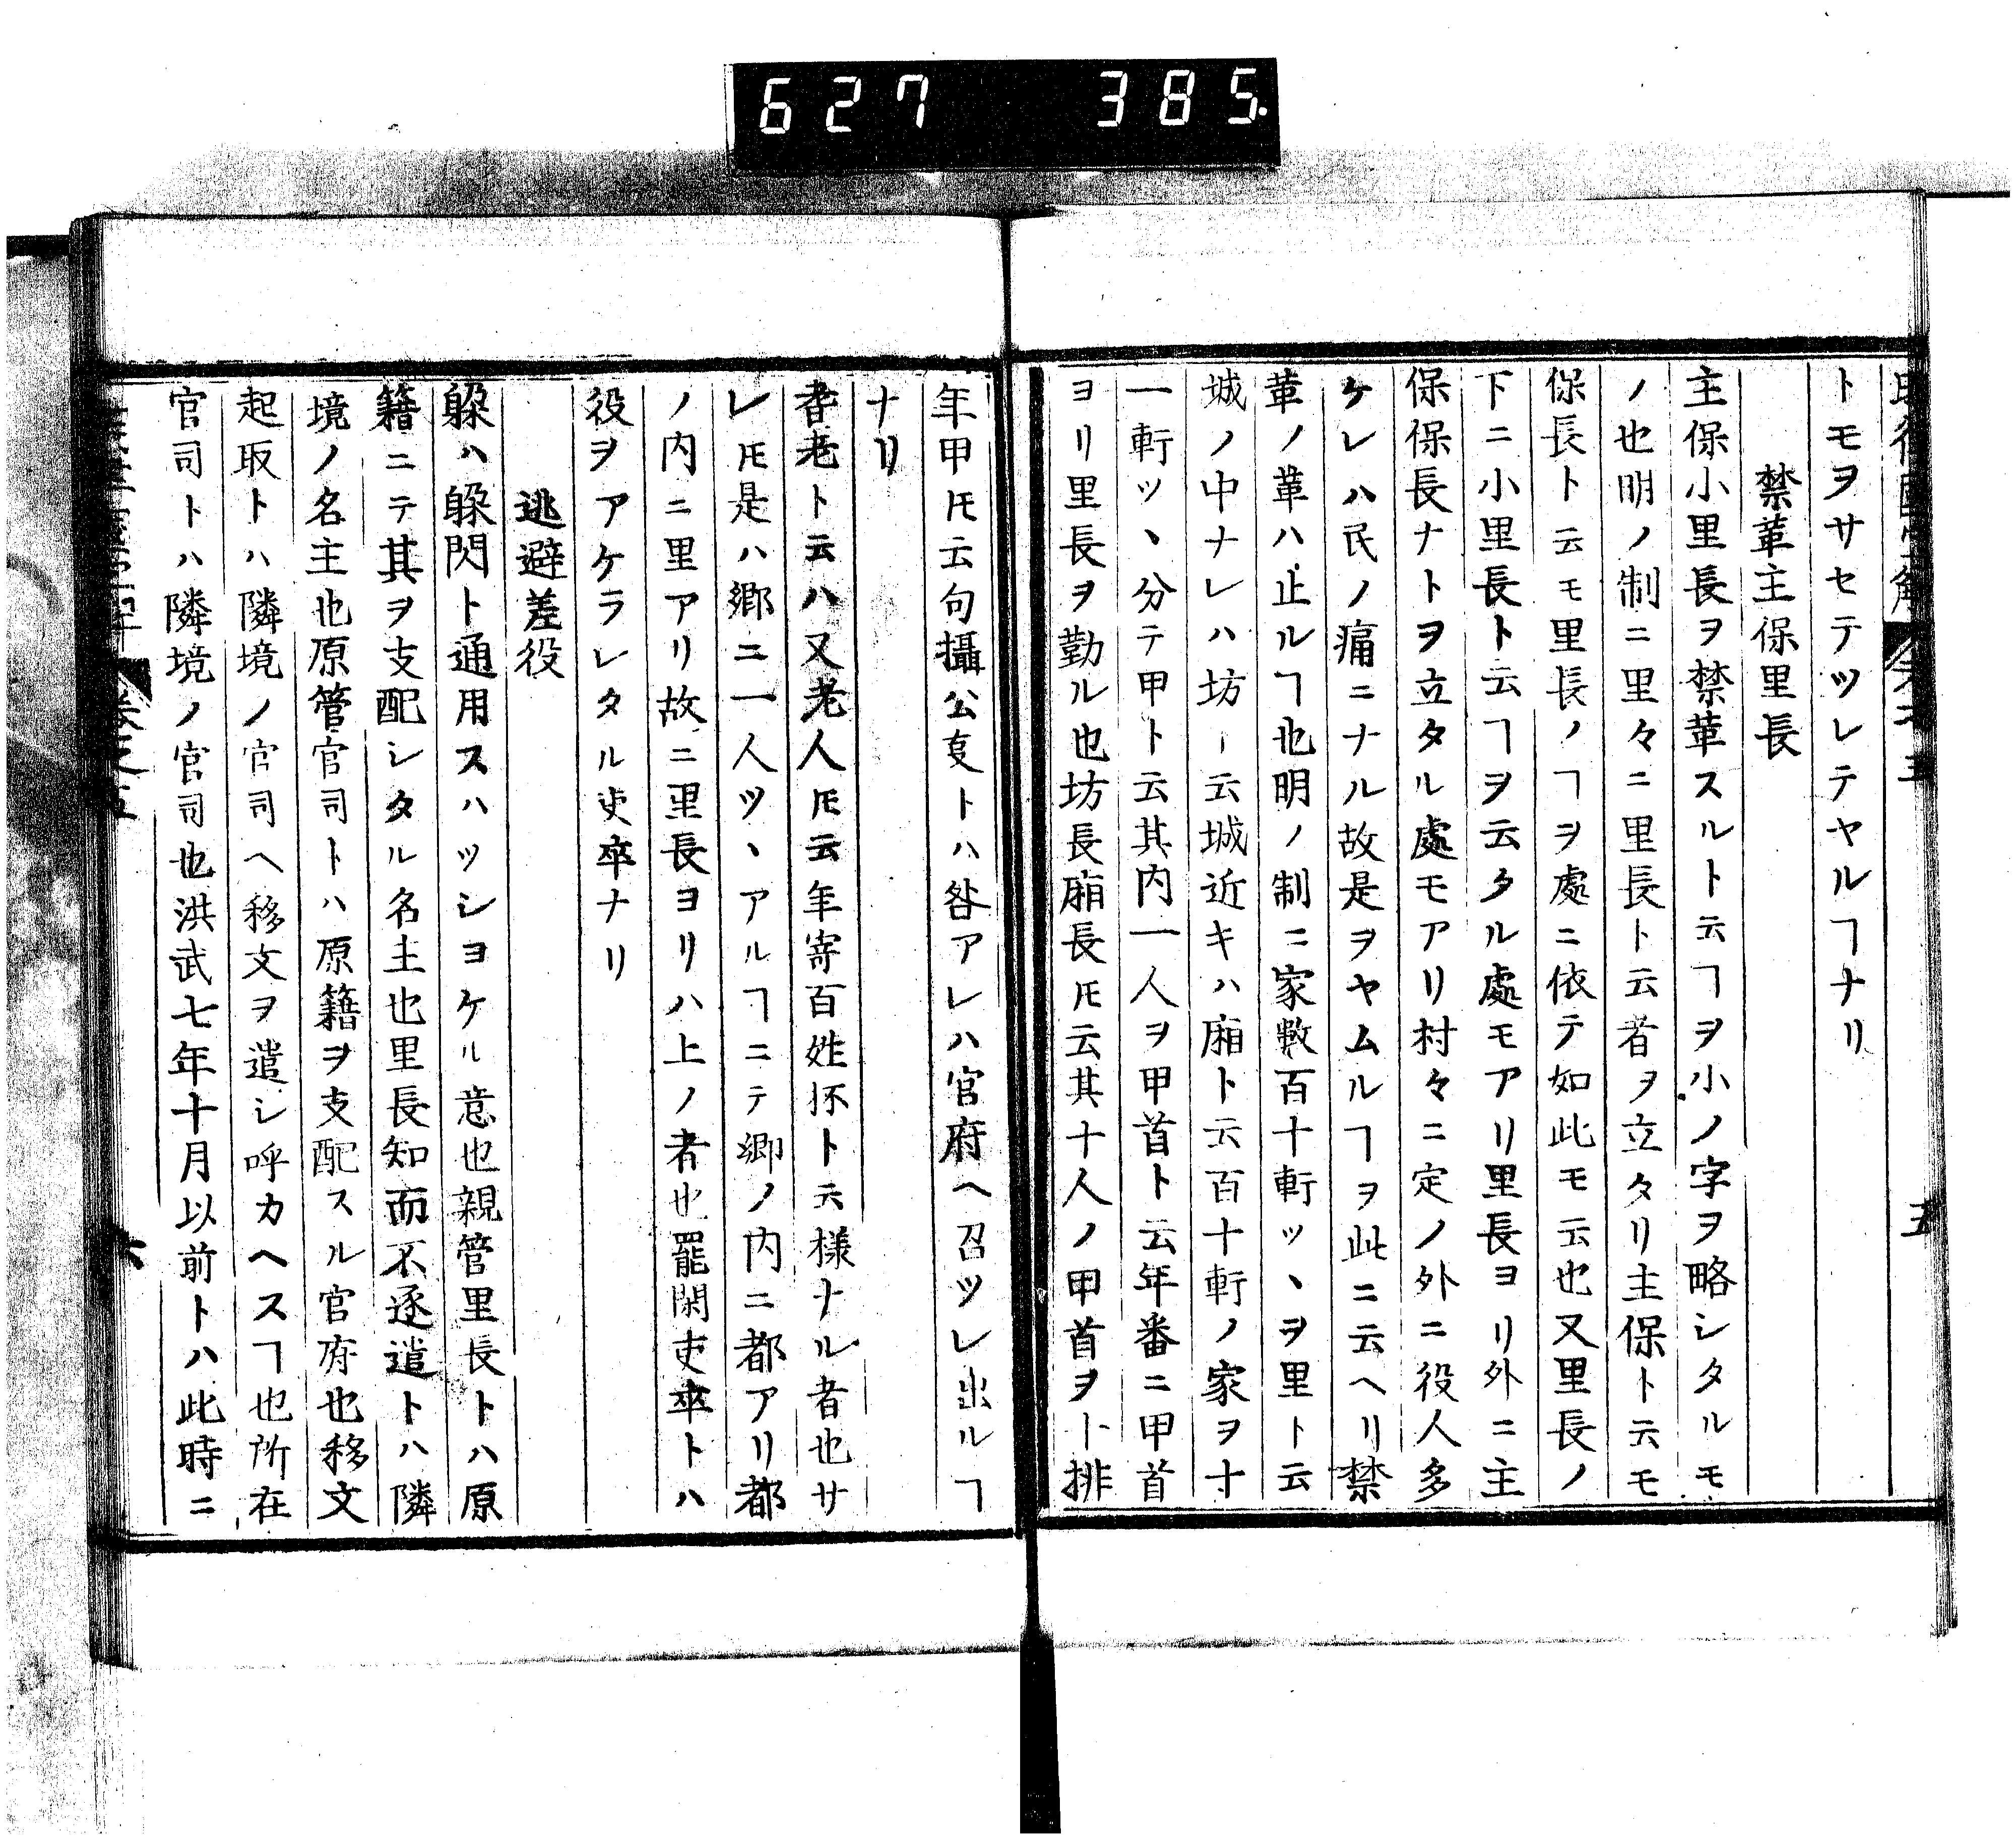 627 385
トモヲサセテツレテヤルヿナリ
禁革主保里長
主保小里長ヲ禁革スルト云ヿヲ小ノ字ヲ略シタルモ
ノ也明ノ制ニ里々ニ里長ト云者ヲ立タリ主保ト云モ
保長ト云モ里長ノヿヲ處ニ依テ如此モ云也又里長ノ
下ニ小里長ト云ヿヲ云タル處モアリ里長ヨリ外ニ主
保保長ナトヲ立タル處モアリ村々ニ定ノ外ニ役人多
ケレハ民ノ痛ニナル故是ヲヤムルヿヲ此ニ云ヘリ禁
革ノ革ハ止ルヿ也明ノ制ニ家數百十軒ツヽヲ里ト云
城ノ中ナレハ坊ト云城近キハ廂ト云百十軒ノ家ヲ十
一軒ツヽ分テ甲ト云其内一人ヲ甲首ト云年番ニ甲首
ヨリ里長ヲ勤ル也坊長廂長𪜈云其十人ノ甲首ヲ排
年甲𪜈云句攝公叓トハ咎アレハ官府ヘ召ツレ出ルヿ
ナリ
耆老ト云ハ又老人𪜈云年寄百姓抔ト云様ナル者也サ
レ𪜈是ハ郷ニ一人ツヽアルヿニテ郷ノ内ニ都アリ都
ノ内ニ里アリ故ニ里長ヨリハ上ノ者也罷閑吏卒トハ
役ヲアケラレタル吏卒ナリ
逃避差役
躱ハ躱閃ト通用スハツシヨケル意也親管里長トハ原
籍ニテ其ヲ支配シタル名主也里長知而不逐遣トハ隣
境ノ名主也原管官司トハ原籍ヲ支配スル官府也移文
起取トハ隣境ノ官司ヘ移文ヲ遣シ呼カヘスヿ也所在
官司トハ隣境ノ官司也洪武七年十月以前トハ此時ニ